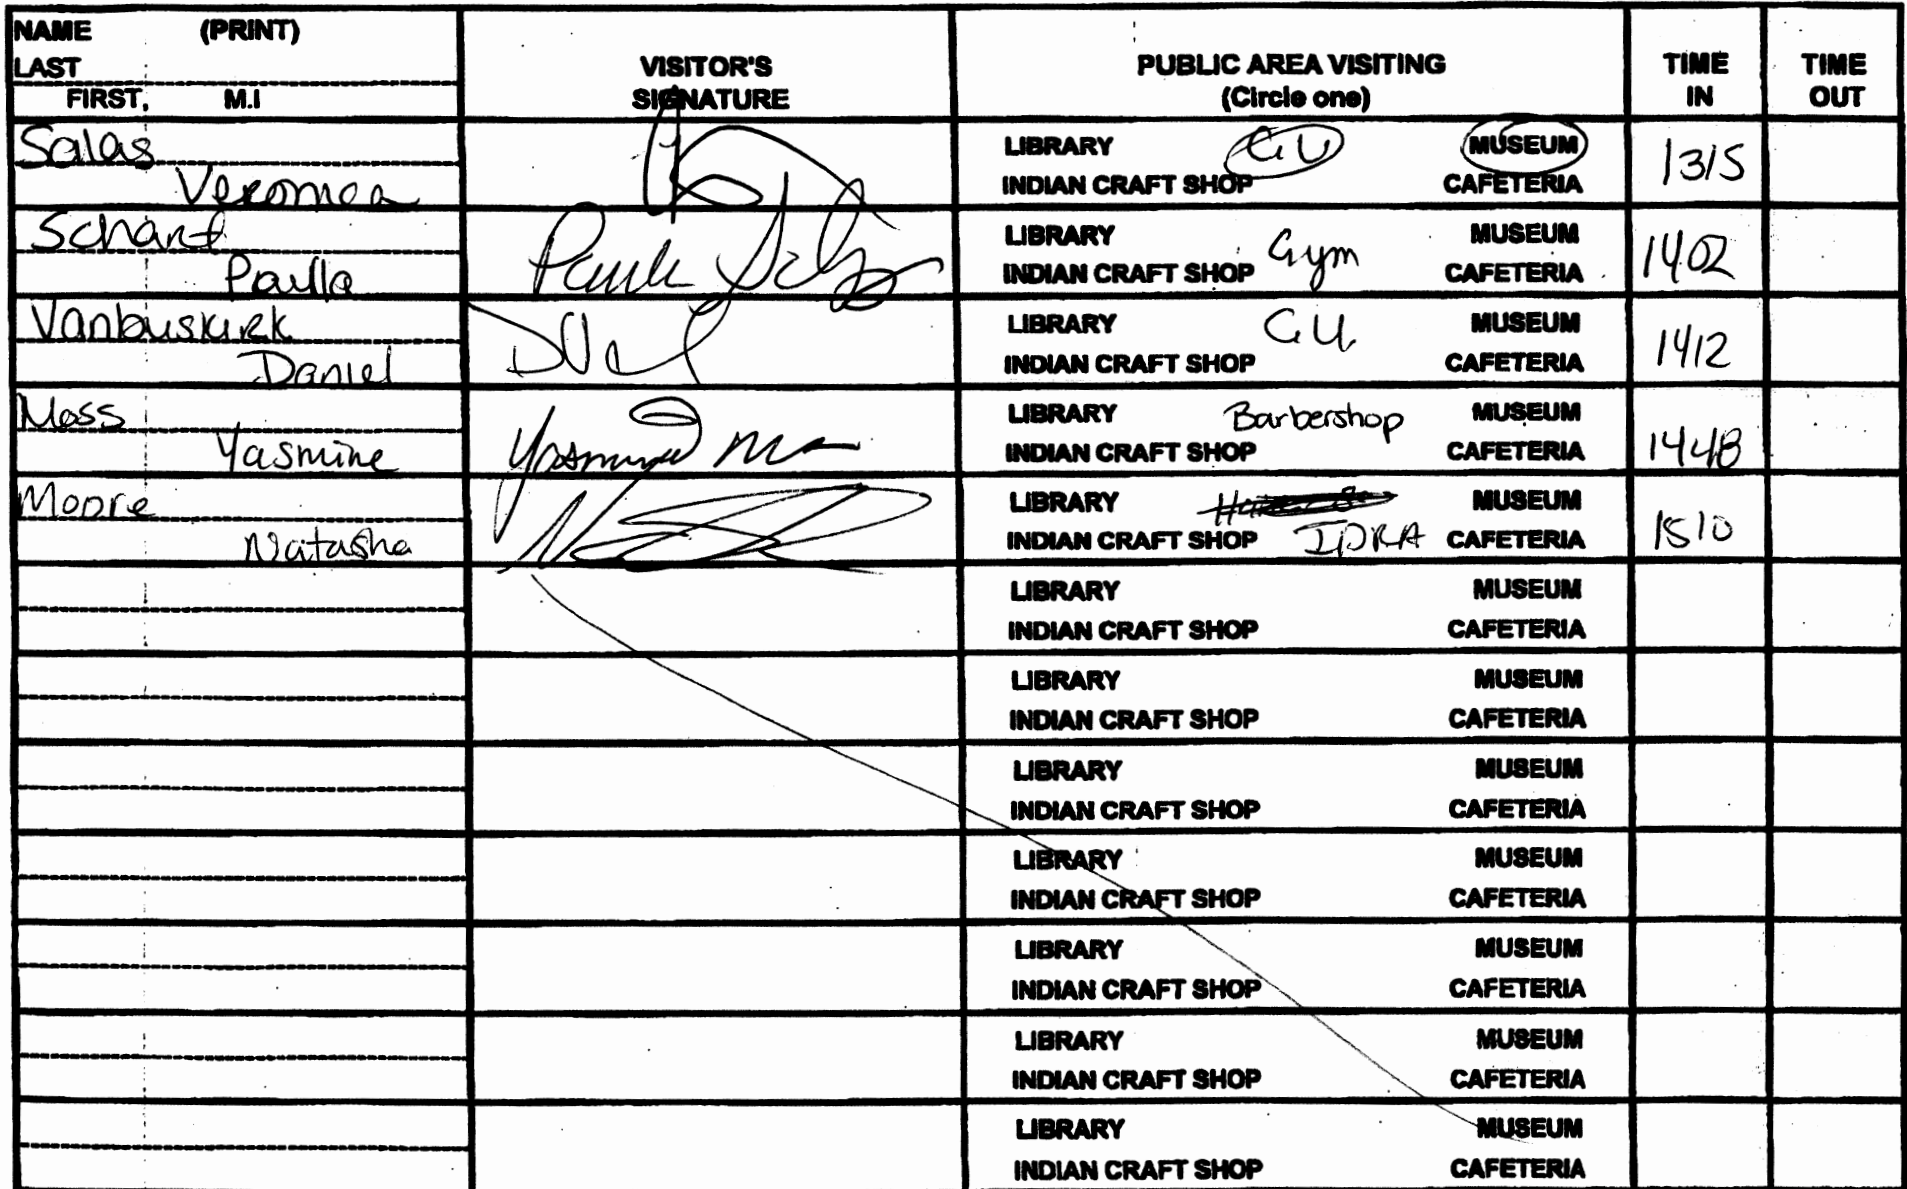 NAME (PRINT)
LAST
FIRST, M.I
VISITOR'S
SIGNATURE
PUBLIC AREA VISITING
(Circle one)
TIME
IN
TIME
OUT
Salas
Veronica
LIBRARY GU MUSEUM
INDIAN CRAFT SHOP CAFETERIA
1315
Scharf
Paula
LIBRARY MUSEUM
Gym
INDIAN CRAFT SHOP CAFETERIA
1402
Vanbuskirk
Daniel
LIBRARY G.U. MUSEUM
INDIAN CRAFT SHOP CAFETERIA
1412
Moss
Yasmine
LIBRARY Barbershop MUSEUM
INDIAN CRAFT SHOP CAFETERIA
1448
Moore
Natasha
LIBRARY MUSEUM
INDIAN CRAFT SHOP CAFETERIA
1510
LIBRARY MUSEUM
INDIAN CRAFT SHOP CAFETERIA
LIBRARY MUSEUM
INDIAN CRAFT SHOP CAFETERIA
LIBRARY MUSEUM
INDIAN CRAFT SHOP CAFETERIA
LIBRARY MUSEUM
INDIAN CRAFT SHOP CAFETERIA
LIBRARY MUSEUM
INDIAN CRAFT SHOP CAFETERIA
LIBRARY MUSEUM
INDIAN CRAFT SHOP CAFETERIA
LIBRARY MUSEUM
INDIAN CRAFT SHOP CAFETERIA